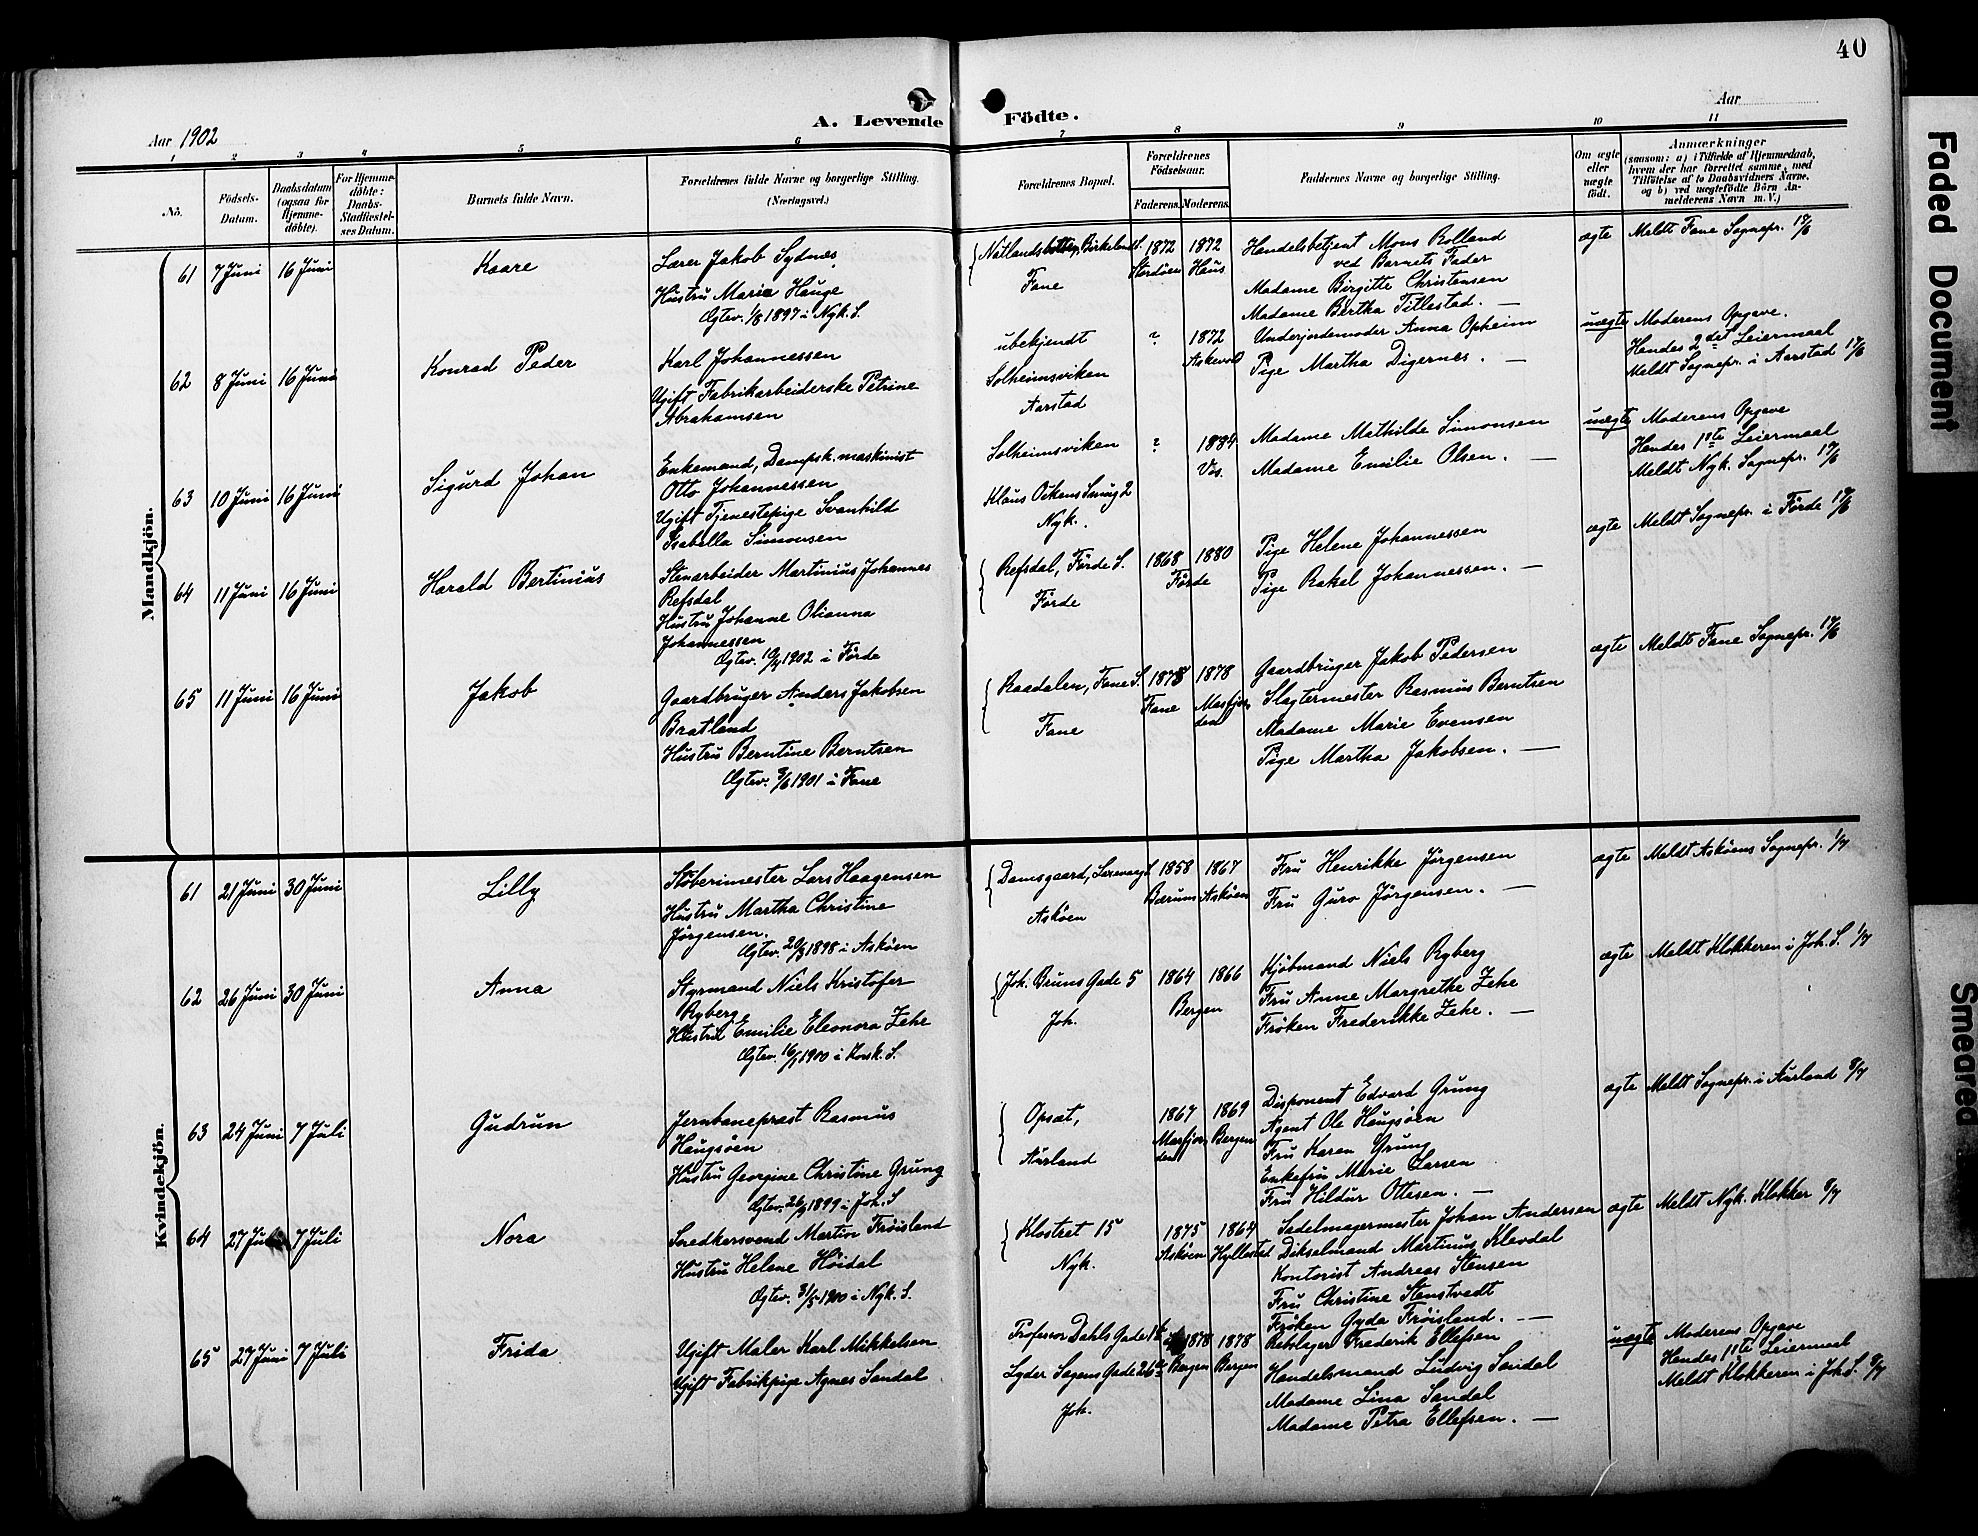 40
Aar 1902
A. Levende Födte.
Aar
1 2 3 4 5 6 7 8 9 10 11
No.
Födsels-Datum.
Daabsdatum (ogsaa for Hjemmedöbte).
For Hjemmedöbte: Daabs-Stadfæstelses Datum.
Barnets fulde Navn.
Forældrenes fulde Navne og borgerlige Stilling. (Næringsvei.)
Forældrenes Bopæl.
Forældrenes Födselsaar.
Faderens. Moderens.
Faddernes Navne og borgerlige Stilling.
Om ægte eller uægte födt.
Anmærkninger
(saasom: a) i Tilfælde af Hjemmedaab, hvem der har forrettet samme, med Tilföielse af to Daabsvidners Navne, og b) ved uægtefödte Börn Anmelderens Navn m. V.)
Mandkjön.
61 7 Juni 16 Juni Kaare
Lærer Jakob Sydnes
Hustru Maria Hauge
Ægtev. 1/8 1897 i Nyk. S.
Fane
1872 Stordöen 1872 Haus
Handelsbetjent Mons Rolland
ved Barnets Fader
Madame Birgitte Christensen
Madame Bertha Tillestad. —
ægte Meldt Fane Sognepr. 17/6
62 8 Juni 16 Juni Konrad Peder
Karl Johannessen
Ugift Fabrikarbeiderske Petrine
Abrahamsen
ubekjendt
Solheimsviken
Aarstad
? 1872 Askevold
Underjordemoder Anna Opheim
Pige Martha Digernes. —
uægte Moderens Opgave.
Hendes 2det Leiermaal
Meldt Sognepr. i Aarstad 17/6
63 10 Juni 16 Juni Sigurd Johan
Enkemand, Dampsk. maskinist
Otto Johannessen
Ugift Tjenestepige Svanhild
Isabella Simonsen
Solheimsviken
Klaus Ockens Smug 2
Nyk.
? 1884 Vos.
Madame Mathilde Simonsen
Madame Emilie Olsen. —
uægte Moderens Opgave
Hendes 1ste Leiermaal
Meldt Nyk. Sognepr. 17/6
64 11 Juni 16 Juni Harald Bertinius
Stenarbeider Martinius Johannes
Refsdal
Hustru Johanne Olianna
Johannessen
Ægtev. 1902 i Förde
Refsdal, Förde S.
Förde
1868 1880
Förde
Pige Helene Johannessen
Pige Rakel Johannessen. —
ægte Meldt Sognepr. i Förde 17/6
65 11 Juni 16 Juni Jakob
Gaardbruger Anders Jakobsen
Bratland
Hustru Berntine Berntsen
Ægtev. 9/6 1901 i Fane
Raadalen, Fane S.
Fane
Fane 1878 Masfjorden
Gaardbruger Jakob Pedersen
Slagtermester Rasmus Berntsen
Madame Marie Evensen
Pige Martha Jakobsen. —
ægte Meldt Fane Sognepr. 17/6
Kvindekjön.
61 21 Juni 30 Juni Lilly
Stöberimester Lars Haagensen
Hustru Martha Christine
Jörgensen.
Ægtev. 1898 i Asköen
Damsgaard, Laxevaag
Asköen
1858 Bærum 1867 Asköen
Fru Henrikke Jörgensen
Fru Guro Jörgensen. —
ægte Meldt Asköens Sognepr. 1/7
62 26 Juni 30 Juni Anna
Styrmand Niels Kristofer
Ryberg
Hustru Emilie Eleonora Zehe
Ægtev. 1900 i Korsk. S.
Joh. Bruns Gade 5
Joh.
1864 1866
Bergen
Kjöbmand Niels Ryberg
Fru Anne Margrethe Zehe
Fröken Frederikke Zehe. —
ægte Meldt Klokkeren i Joh. S. 1/7
63 24 Juni 7 Juli Gudrun
Jernbanepræst Rasmus
Haugsöen
Hustru Georgine Christine Grung
Ægtev. 1899 i Joh. S.
Opsat,
Aurland
1867 Masfjorden 1869 Bergen
Disponent Edvard Grung
Agent Ole Haugsöen
Fru Karen Grung
Enkefru Marie Larsen
Fru Hildur Ottesen. —
ægte Meldt Sognepr. i Aurland 8/7
64 27 7 Juli Nora
Snedkersvend Martin Fröisland
Hustru Helene Höidal
Ægtev. 31/5 1900 i Nyk. S.
Klostret 15
Nyk.
1875 Asköen 1864 Hyllestad
Sadelmagermester Johan Andersen
Dikselmand Martinus Klevdal
Kontorist Andreas Stensen
Fru Christine Stenstvedt
Fröken Gyda Fröisland. —
ægte Meldt Nyk. Klokker 8/7
65 27 Juni 7 Juli Frida
Ugift Maler Karl Mikkelsen
Ugift Fabrikpige Agnes Sandal
Professor Dahls Gade
Lyder Sagens Gade
Joh.
1878 Bergen 1878 Bergen
Rebslager Frederik Ellefsen
Handelsmand Ludvig Sandal
Madame Lina Sandal
Madame Petra Ellefsen. —
uægte Moderens Opgave
Hendes 1ste Leiermaal
Meldt Klokkeren i Joh. S. 8/7
Faded Document
Smeared